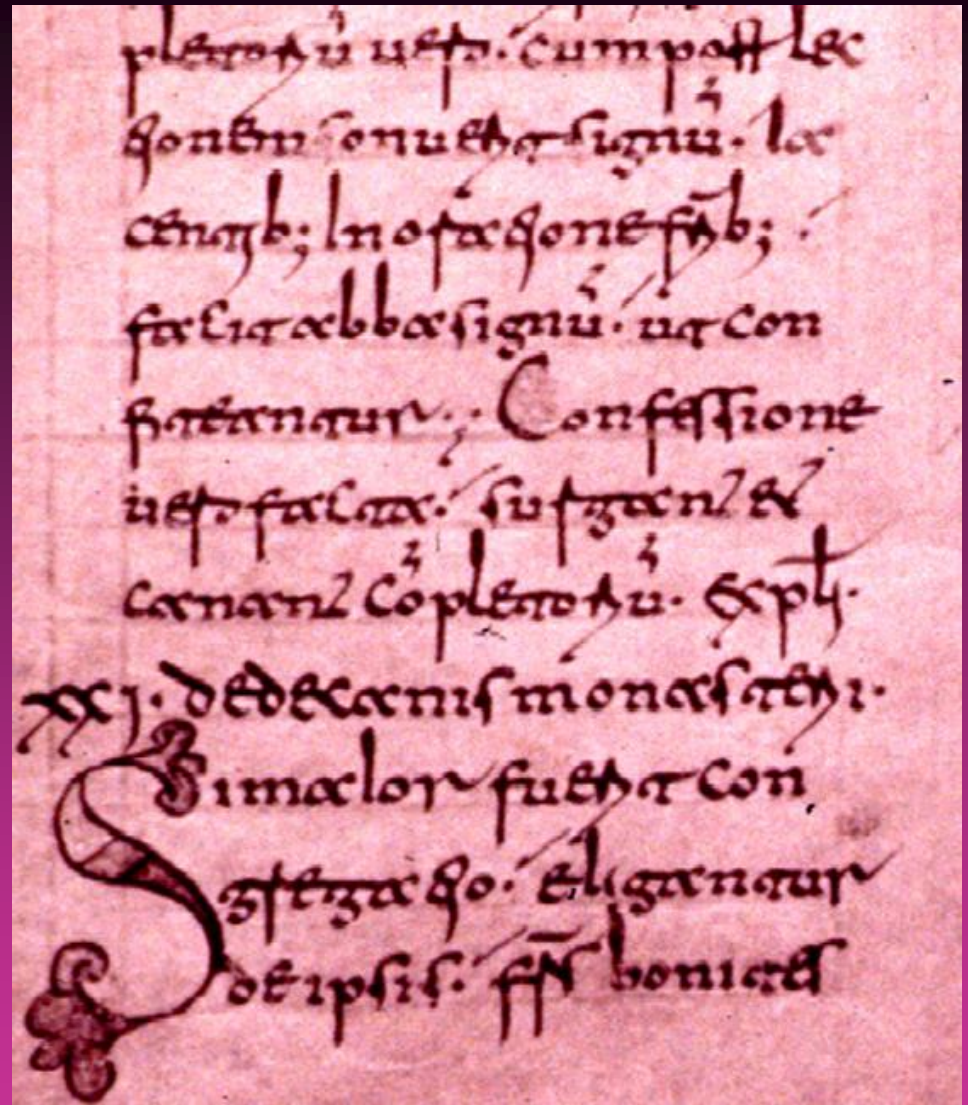 pletoriū uero. cum post lec
tionem sonuerit signū. Ia
centib; In oratione frīb;
faciat abba signū. ut con
fiteantur.; Confessione
uero facta. surgant et
canant cōpletoriū. Expli.
XXI. de decanis monasterii.
Si maior fuerit con
gregatio. eligantur
de ipsis. frs̄ boni tes